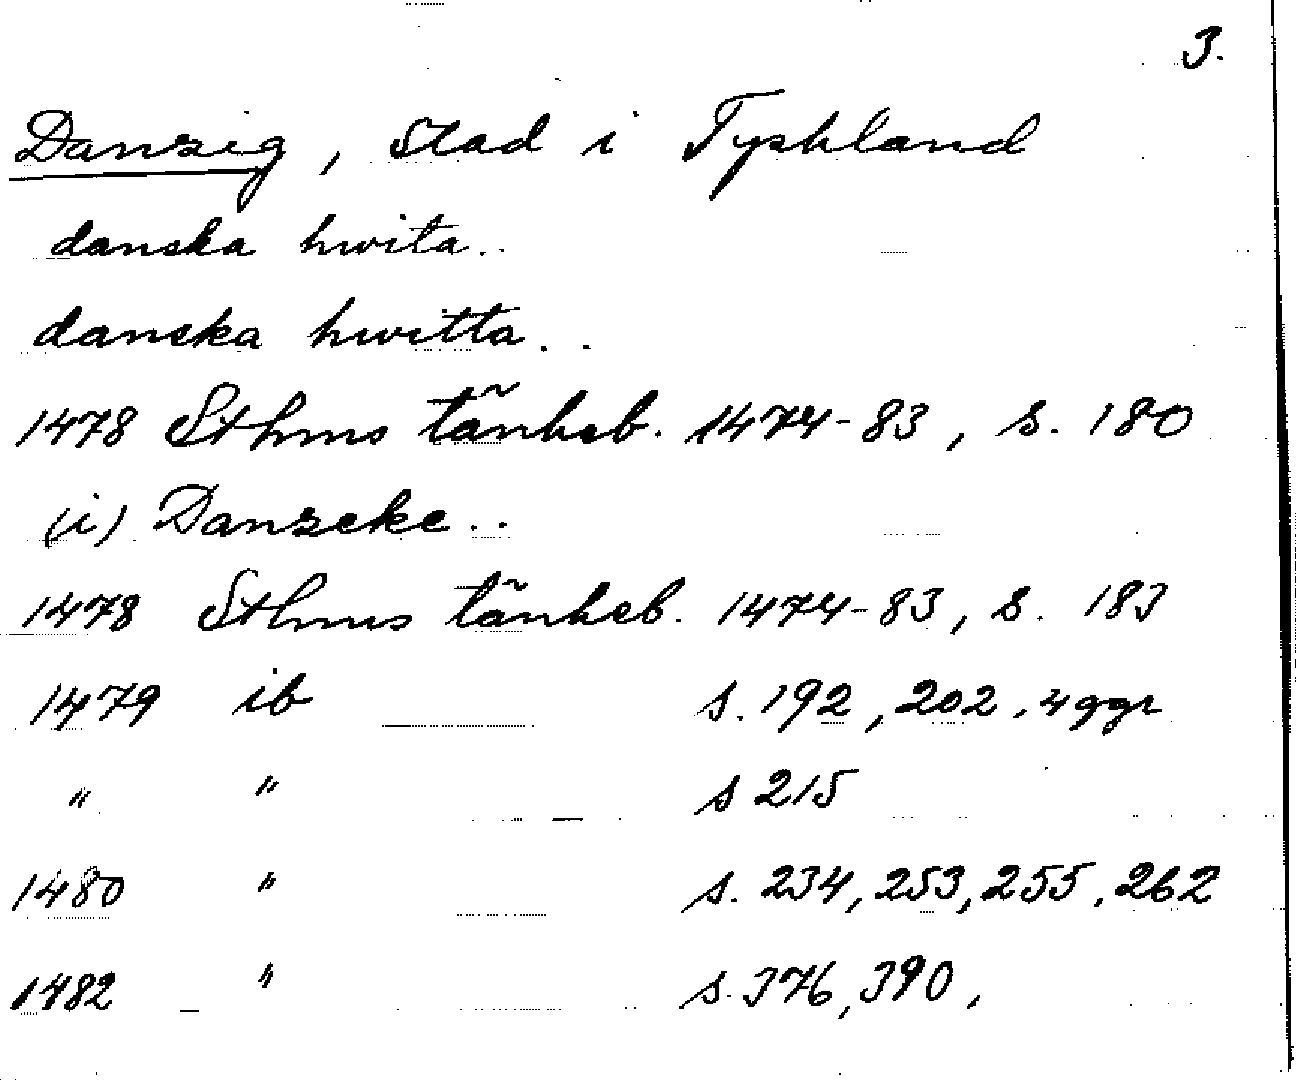 3.
Danzig, stad i Tyskland
danska hwita..
danska hwitta..
1478 Sthms tänkeb. 1474-83, s. 180
(i) Danzeke..
1478 Sthms tänkeb. 1474-83, s. 183
1479 ib s. 192, 202, 4 ggr
" " s 215
1480 " s. 234, 253, 255, 262
1482 " s. 376, 390,